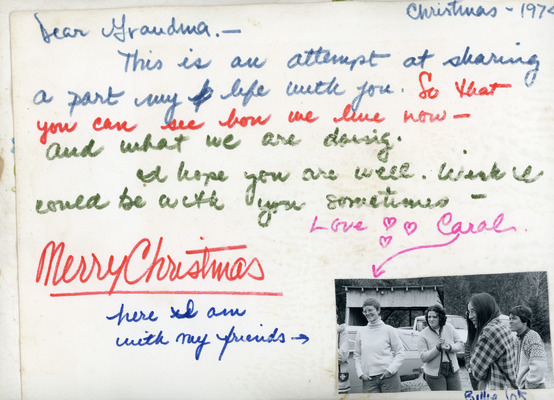 Christmas - 1974
Dear Grandma. —
This is an attempt at sharing
a part my life with you. So that
you can see how we live now —
and what we are doing.
I hope you are well. Wish I
could be with you sometimes —
Love Carol.
Merry Christmas
here I am
with my friends →
Billie